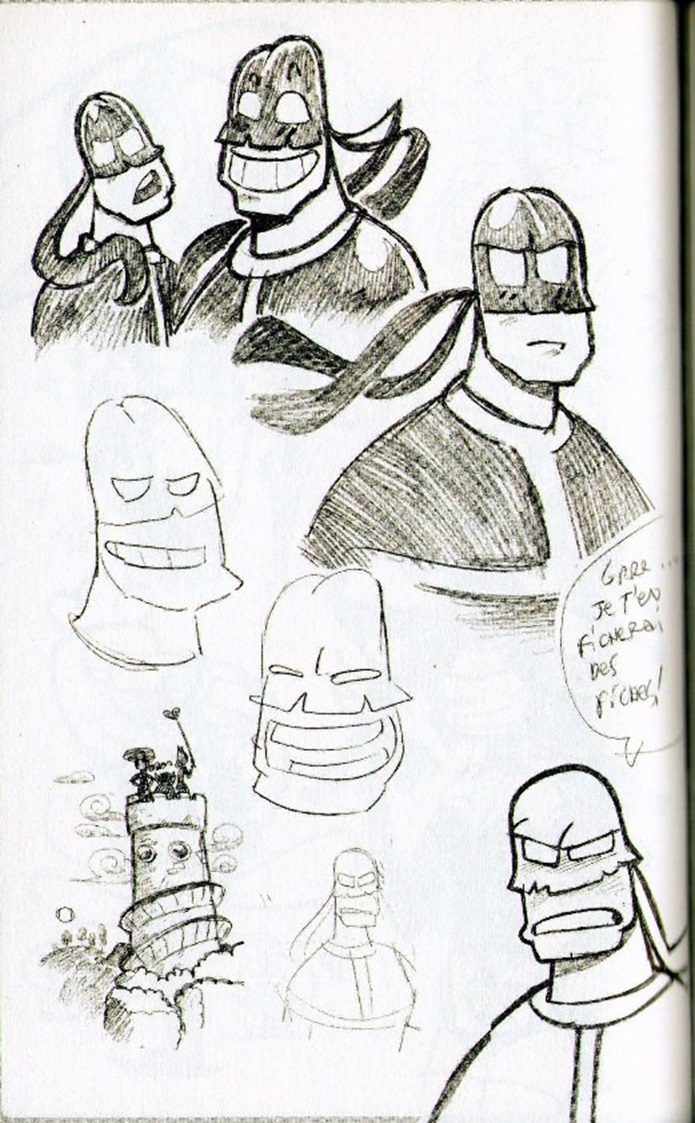 Grrr...
Je T'en
ficherai
Des
fiches!